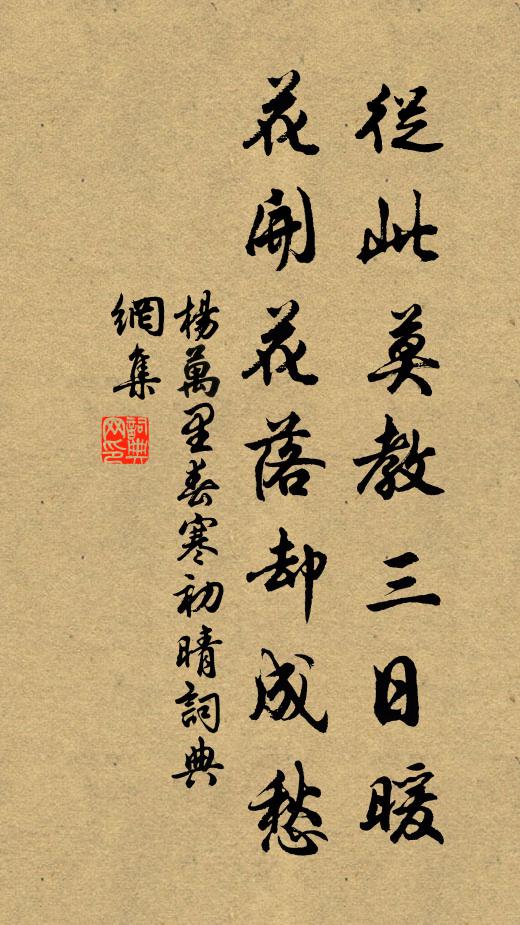 從此莫教三日暖
花開花落却成愁
楊萬里春寒初晴詞典
網集
詞典
网印